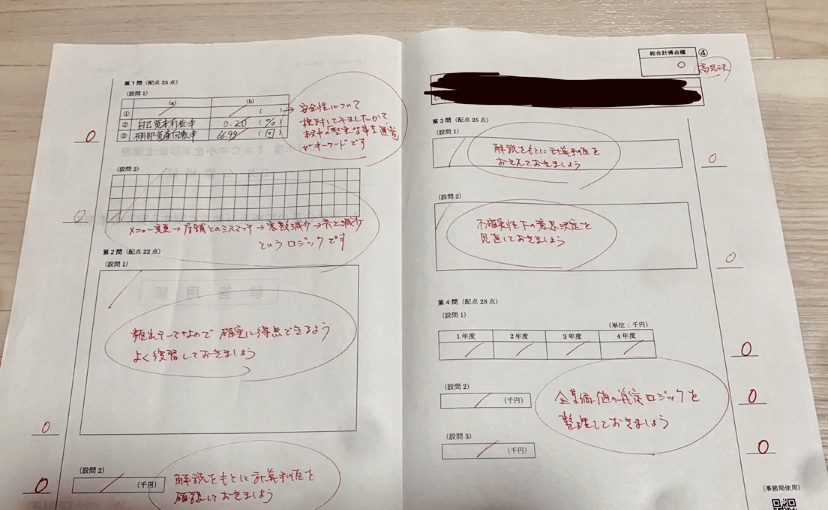 第1問(配点25点)
(設問1)
(a)
(b)
①
( )
②
自己資本比率
0.20
(%)
③
(回)
0
安全性について
検討してみましたか?
キーワードです
(設問2)
0
メニュー変更→店舗とのミスマッチ→客数減少→売上減少
というロジックです
第2問(配点22点)
(設問1)
頻出テーマなので確実に得点できるよう
よく復習しておきましょう
0
(設問2)
(千円)
解説をもとに計算手順を
確認しておきましょう
0
総合計得点欄
④
0
第3問(配点25点)
(設問1)
解説をもとに計算手順を
おさえておきましょう
0
(設問2)
不確実性下の意思決定を
見直しておきましょう
0
第4問(配点28点)
(設問1)
(単位:千円)
1年度
2年度
3年度
4年度
0
(設問2)
(千円)
0
企業価値の算定ロジックを
整理しておきましょう
(設問3)
(千円)
0
(事務局使用)